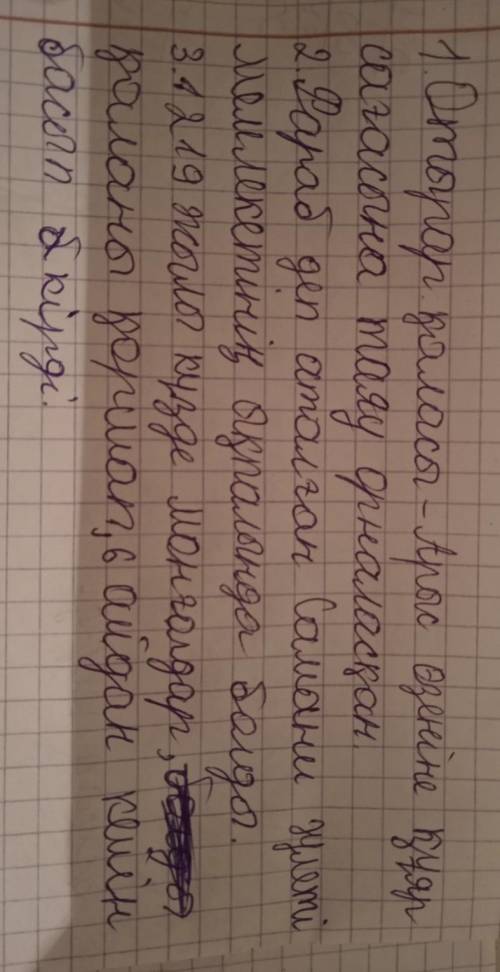 1. Отырар қаласы - Арыс өзеніне құяр
сағасына таяу орналасқан.
2 Фараб деп аталған Самани әулеті
мемлекетінің ықпалында болды.
3. 1219 жылы күзде монғолдар,
қаланы қоршап, 6 айдан кейін
басып кірді.